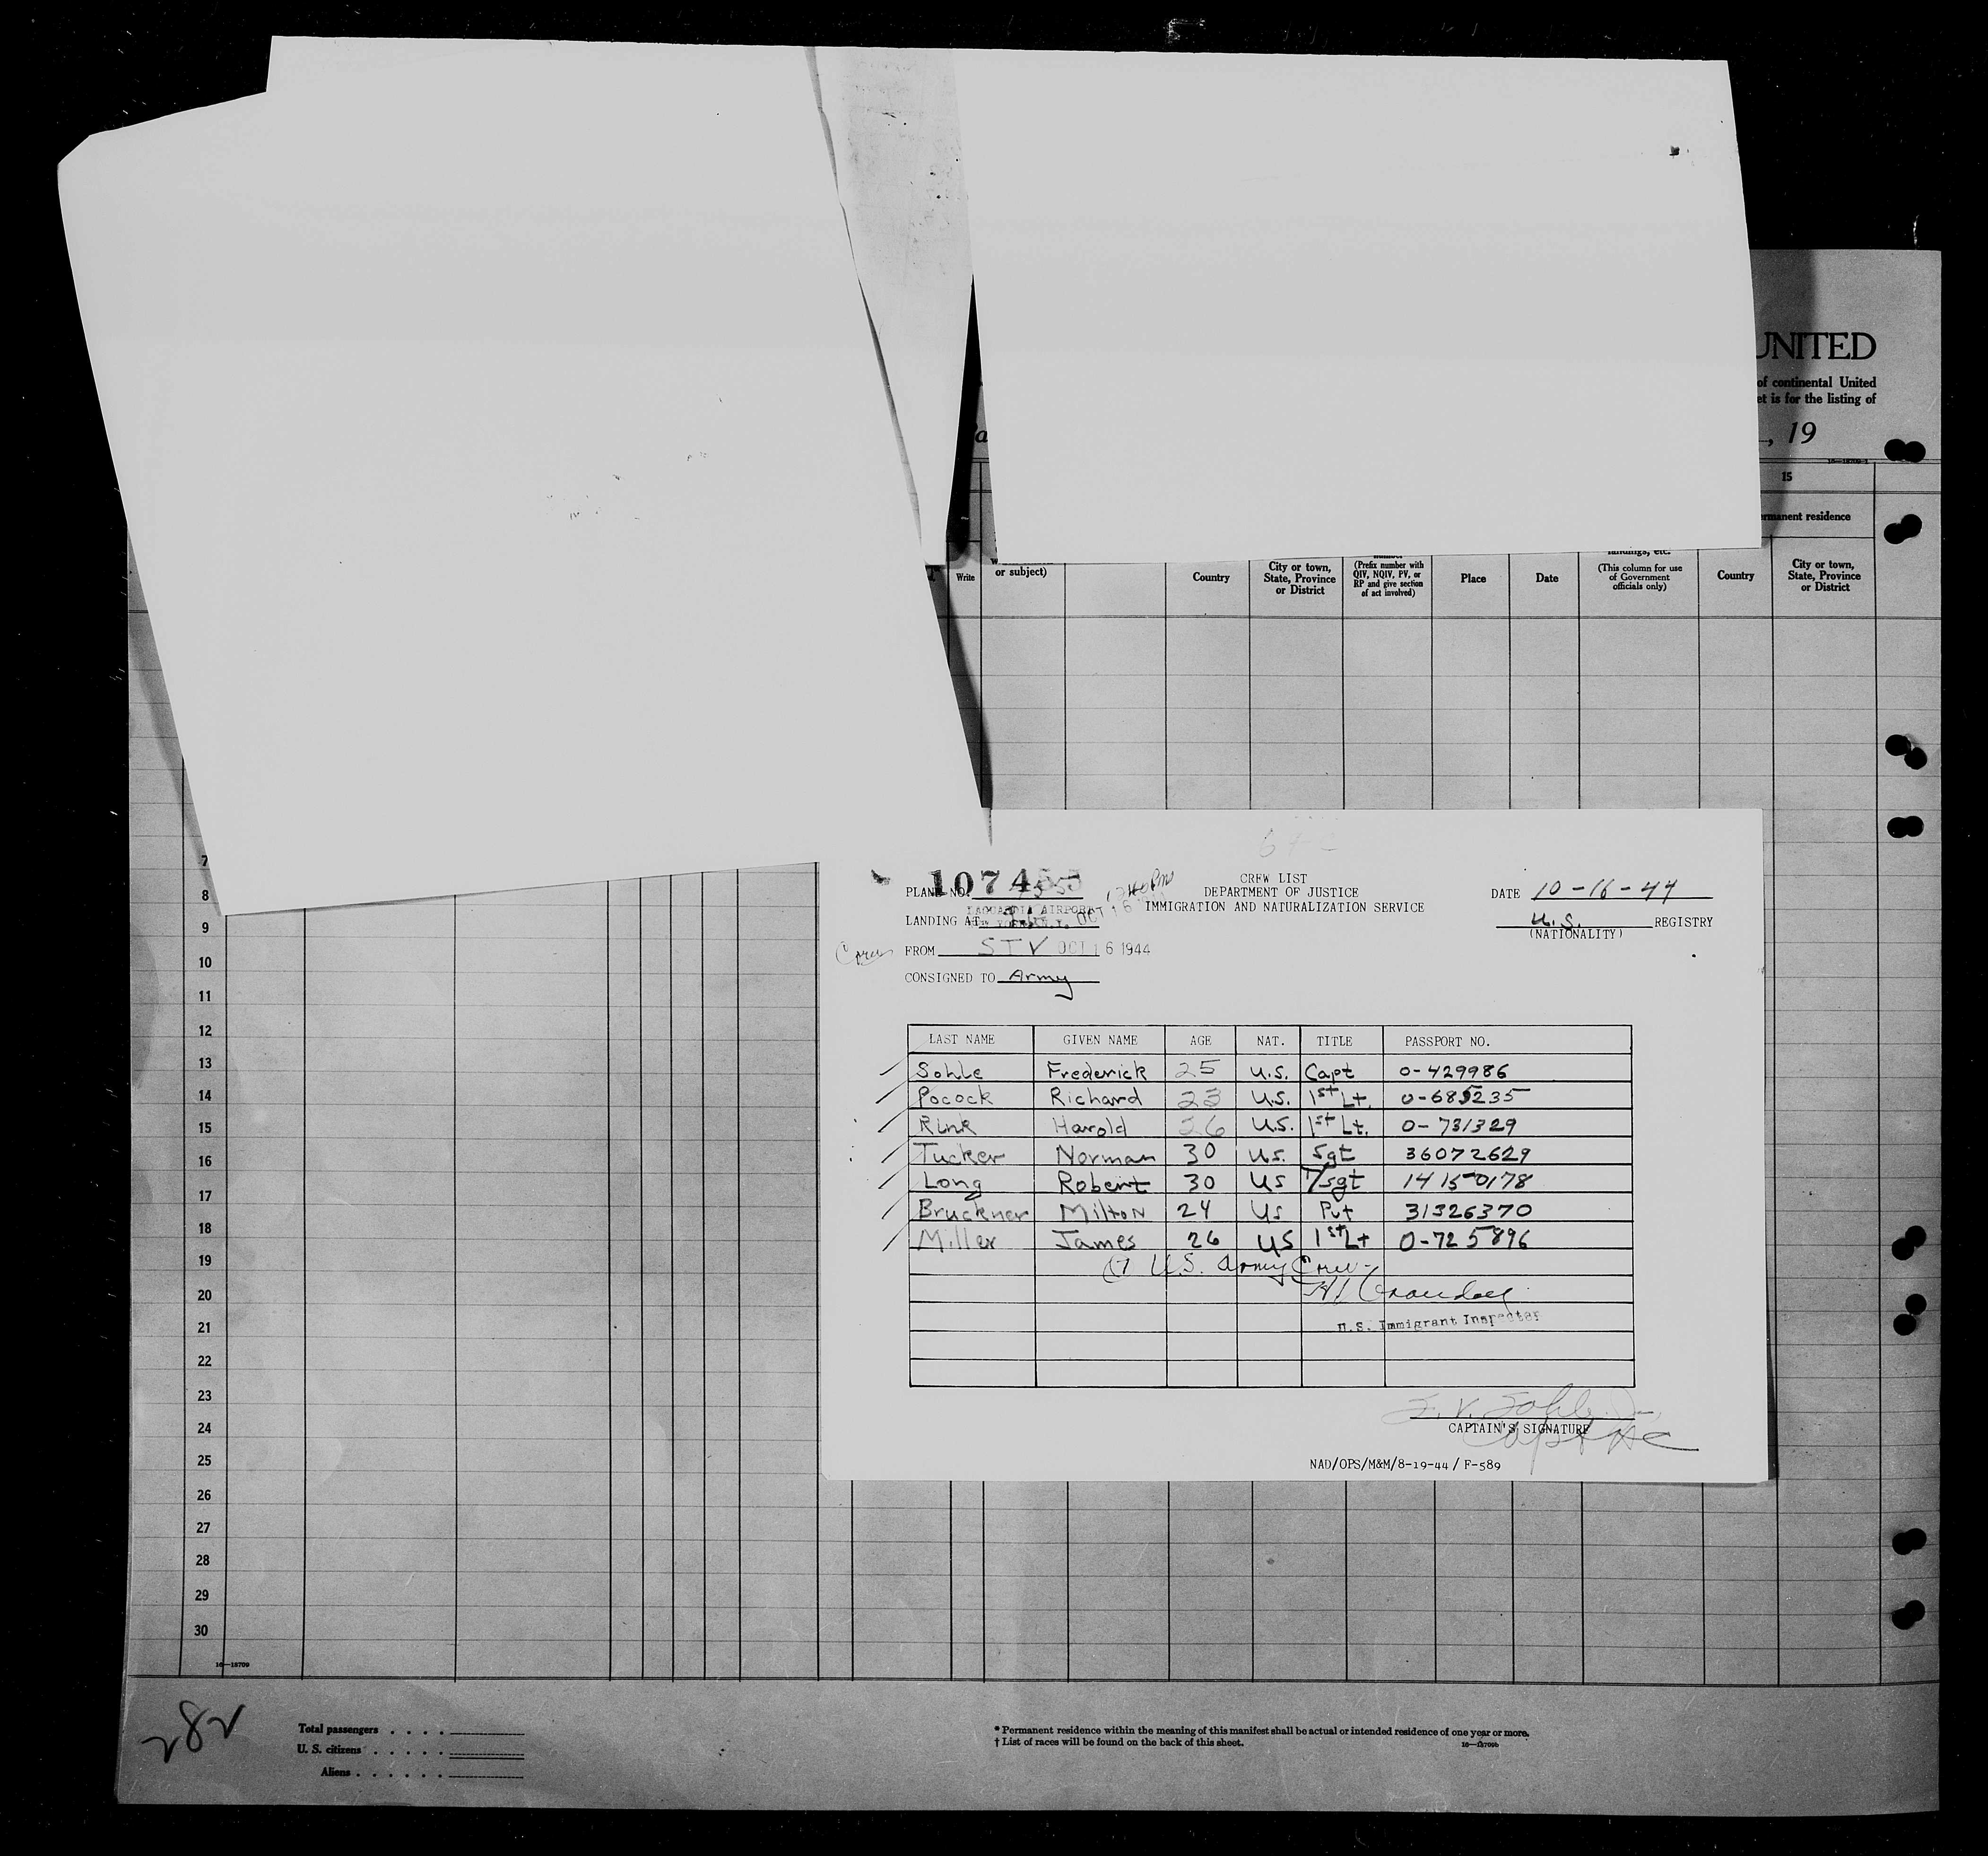 UNITED
of continental United
et is for the listing of
, 19
15
rmanent residence
Write
or subject)
Country
City or town, State, Province or District
(Prefix number with QIV, NQIV, PV, or RP and give section of act involved)
Place
Date
landings, etc. (This column for use of Government officials only)
Country
City or town, State, Province or District
CREW LIST
DEPARTMENT OF JUSTICE
IMMIGRATION AND NATURALIZATION SERVICE
PLANE NO.
DATE 10-16-44
LANDING AT
U.S. REGISTRY
(NATIONALITY)
FROM STV OCT 16 1944
CONSIGNED TO Army
LAST NAME GIVEN NAME AGE NAT. TITLE PASSPORT NO.
Sohle Frederick 25 U.S. Capt 0-429986
Pocock Richard 23 U.S. 1st Lt. 0-685235
Rink Harold 26 U.S. 1st Lt. 0-731329
Tucker Norman 30 U.S. Sgt 36072629
Long Robert 30 US T/sgt 14150178
Bruckner Milton 24 US Pvt 31326370
Miller James 26 US 1st Lt 0-725896
U.S. Army Crew
U.S. Immigrant Inspector
CAPTAIN'S SIGNATURE
NAD/OPS/M&M/8-19-44 / F-589
7
8
9
10
11
12
13
14
15
16
17
18
19
20
21
22
23
24
25
26
27
28
29
30
16—18709
282
Total passengers . . . .
U. S. citizens . . . . .
Aliens . . . . . .
* Permanent residence within the meaning of this manifest shall be actual or intended residence of one year or more.
† List of races will be found on the back of this sheet.